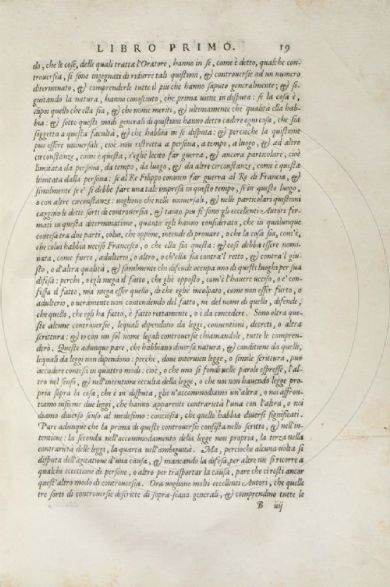 LIBRO PRIMO. 19
do, che le cose, delle quali tratta l'Oratore, hanno in se, come è detto, qualche con-
troversia, si sono ingegnati di ridurre tali quistioni, & controversie ad un numero
determinato, & comprenderle tutte il piu che hanno saputo generalmente; & se-
guitando la natura, hanno conosciuto, che prima viene in disputa: se la cosa è,
dapoi quello che ella sia, & che nome meriti, & ultimamente che qualità ella hab-
bia: & sotto questi modi generali di quistioni hanno detto cadere ogni cosa, che sia
soggetta a questa facultà, & che habbia in se disputa: & percioche la quistione
puo essere universale, cioè non ristretta a persona, a tempo, a luogo, & ad altre
circonstanze, come è questa, s'egli è lecito far guerra, & ancora particolare, cioè
limitata dalla persona, da tempo, da luogo, & da altre circonstanze, come è questa
limitata dalla persona: se al Re Filippo conviene far guerra al Re de Francia, &
similmente se e' si debbe fare una tal impresa in questo tempo, & in questo luogo,
o con altre circonstanze: vogliono che nelle universali, & nelle particolari quistioni
caggino le dette sorti di controversia, & tanto piu si sono gli eccellenti Autori fer-
mati in questa determinatione, quanto egli hanno considerato, che in qualunque
contesa tra due parti, colui, che oppone, intende di provare, o che la cosa sia, com'è,
che colui habbia ucciso Francesco, o che ella sia questa: & cosi debbia essere nomi-
nata, come furto, adulterio, o altro, o ch'ella sia contra'l retto, & contra'l giu-
sto, o d'altra qualità, & similmente chi difende occupa uno di questi luoghi per sua
difesa: perche, egli niega il fatto, che gli è opposto, com'è l'havere ucciso, o e' con-
fessa il fatto, ma niega esser quello, di che egli è incolpato, come non esser furto, o
adulterio, o veramente non contendendo del fatto, ne del nome di quello, difende,
che quello, che egli ha fatto, è fatto rettamente, o è da concedere. Sono oltra que-
ste alcune controversie, lequali dependono da leggi, conventioni, decreti, o altra
scrittura: & tutte con un sol nome legali controversie chiamandole, tutte le compren-
derò. Queste adunque pare, che habbiano diversa natura, & conditione da quelle,
lequali da leggi non dependono: perche, dove intervien legge, o simile scrittura, può
accadere contesa in quattro modi: cioè, o che uno si fondi nelle parole espresse, l'al-
tro nel senso, & nell'intentione occulta della legge, o che un non havendo legge pro-
pria sopra la cosa, che è in disputa, gli n'accommodiamo un'altra, o noi affron-
tiamo insieme due leggi, che hanno apparente contrarietà l'una con l'altra, o noi
diamo diverso senso al medesimo: conciosia, che quello habbia diversi significati.
Pare adunque che la prima di queste controversie consista nello scritto, & nell'in-
tentione: la seconda nell'accommodamento della legge non propria, la terza nella
contrarietà delle leggi, la quarta nell'ambiguità. Ma, percioche alcuna volta si
disputa dell'agitatione d'una causa, & mancando la difesa, per altre vie si ricorre a
qualche eccettione di persone, o altro per trasportar la causa, pare che ci resti ancor
quest'altro modo di controversia. Ora vogliono molti eccellenti Autori, che quelle
tre sorti di controversie descritte di sopra siano generali, & comprendino tutte le
B iiij